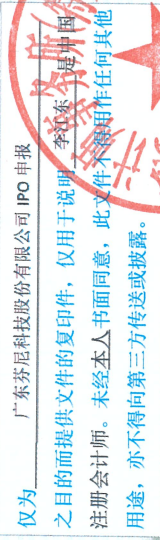 仅为 广东芬尼科技股份有限公司 IPO 申报
之目的而提供文件的复印件，仅用于说明 李江东 是中国
注册会计师。未经本人书面同意，此文件不得用作任何其他
用途，亦不得向第三方传送或披露。